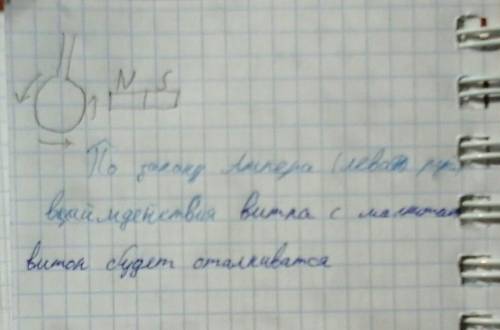 N S
По закону Ампера (левой рук)
взаймдействия витка с магнитам
виток будет отталкиватся